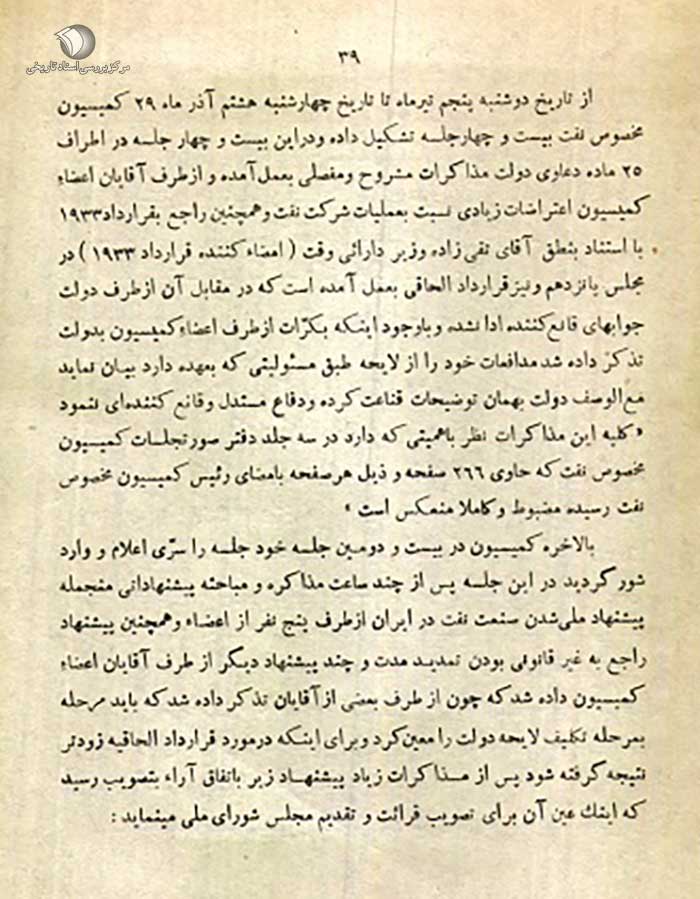 مرکز بررسی اسناد تاریخی
۳۹
از تاریخ دوشنبه پنجم تیرماه تا تاریخ چهارشنبه هشتم آذر ماه ۲۹ کمیسیون
مخصوص نفت بیست و چهارجلسه تشکیل داده ودراین بیست و چهار جلسه در اطراف
۲۵ ماده دعاوی دولت مذاکرات مشروح ومفصلی بعمل آمده و ازطرف آقایان اعضاء
کمیسیون اعتراضات زیادی نسبت بعملیات شرکت نفت وهمچنین راجع بقرارداد۱۹۳۳
با استناد بنطق آقای تقی زاده وزیر دارائی وقت ( امضاء کننده قرارداد ۱۹۳۳ ) در
مجلس پانزدهم ونیزقرارداد الحاقی بعمل آمده است که در مقابل آن ازطرف دولت
جوابهای قانع کننده ادا نشده وباوجود اینکه بکرّات ازطرف اعضاء کمیسیون بدولت
تذکر داده شد مدافعات خود را از لایحه طبق مسئولیتی که بعهده دارد بیان نماید
مع الوصف دولت بهمان توضیحات قناعت کرده ودفاع مستدل وقانع کننده‌ای ننمود
«کلیه این مذاکرات نظر باهمیتی که دارد در سه جلد دفتر صورتجلسات کمیسیون
مخصوص نفت که حاوی ۲۶۶ صفحه و ذیل هرصفحه بامضای رئیس کمیسیون مخصوص
نفت رسیده مضبوط و کاملا منعکس است »
بالاخره کمیسیون در بیست و دومین جلسه خود جلسه را سرّی اعلام و وارد
شور گردید در این جلسه پس از چند ساعت مذاکره و مباحثه پیشنهاداتی منجمله
پیشنهاد ملی‌شدن صنعت نفت در ایران ازطرف پنج نفر از اعضاء وهمچنین پیشنهاد
راجع به غیر قانونی بودن تمدید مدت و چند پیشنهاد دیگر از طرف آقایان اعضاء
کمیسیون داده شد که چون از طرف بعضی از آقایان تذکر داده شد که باید مرحله
بمرحله تکلیف لایحه دولت را معین کرد و برای اینکه درمورد قرارداد الحاقیه زودتر
نتیجه گرفته شود پس از مذاکرات زیاد پیشنهاد زیر باتفاق آراء بتصویب رسید
که اینك عین آن برای تصویب قرائت و تقدیم مجلس شورای ملی مینماید :